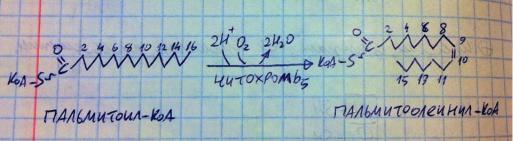 O
C
КоА-S~
2 4 6 8 10 12 14 16
2H⁺ O₂ 2H₂O
ЦИТОХРОМ b₅
O
C
КоА-S~
2 4 6 8
9
10
15 13 11
ПАЛЬМИТОИЛ-КоА
ПАЛЬМИТООЛЕИНИЛ-КоА